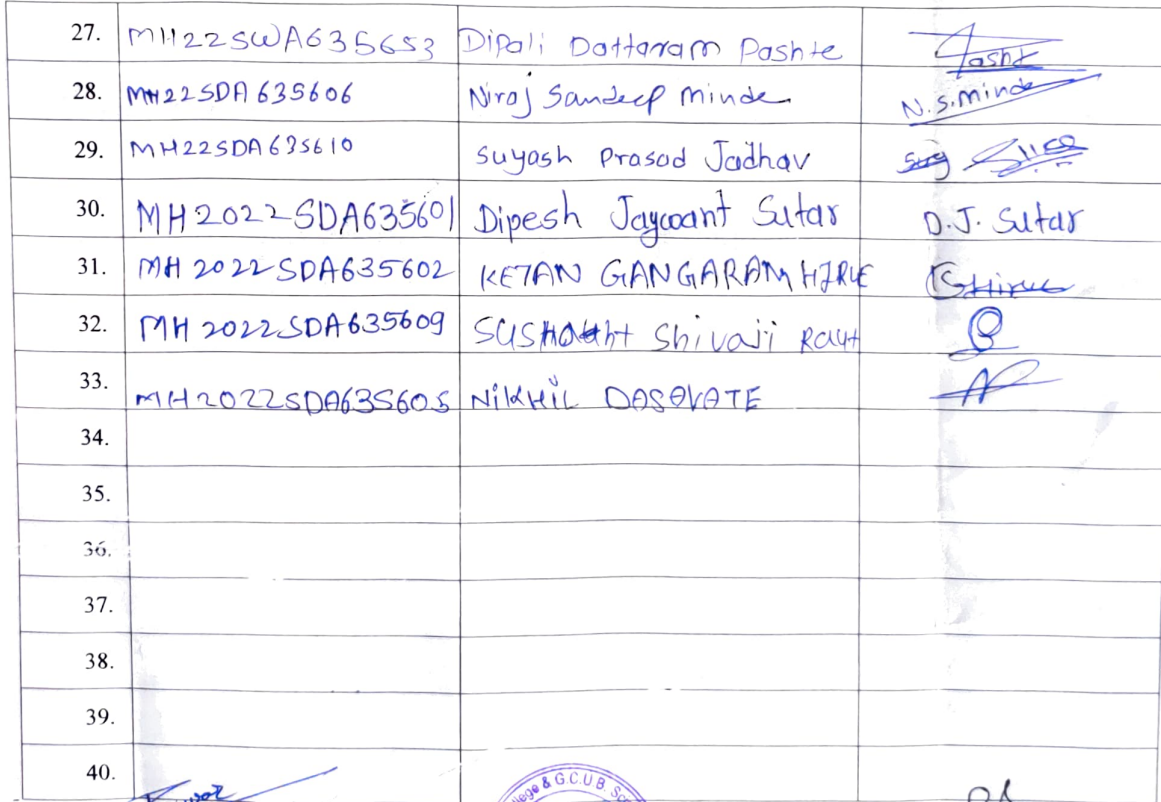 27. MH22SWA635653 Dipali Dattaram Pashte Pashte
28. MH22SDA635606 Niraj Sandeep Minde N.S.Minde
29. MH22SDA635610 Suyash Prasad Jadhav
30. MH2022SDA635601 Dipesh Jaywant Sutar D.J. Sutar
31. MH2022SDA635602 KETAN GANGARAM HIRVE
32. MH2022SDA635609 Shivaji Raut
33. MH2022SDA635605 NiKHiL DASAVATE
34.
35.
36.
37.
38.
39.
40.
& G.C.U.B.